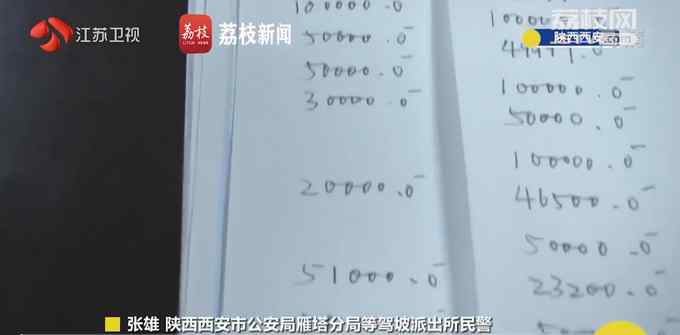 江苏卫视
荔枝
LITCHI NEWS
荔枝新闻
荔枝网
陕西西安
100000.0
50000.0
50000.0
30000.0
20000.0
51000.0
49999.0
100000.0
50000.0
100000.0
46500.0
50000.0
23200.0
张雄 陕西西安市公安局雁塔分局等驾坡派出所民警